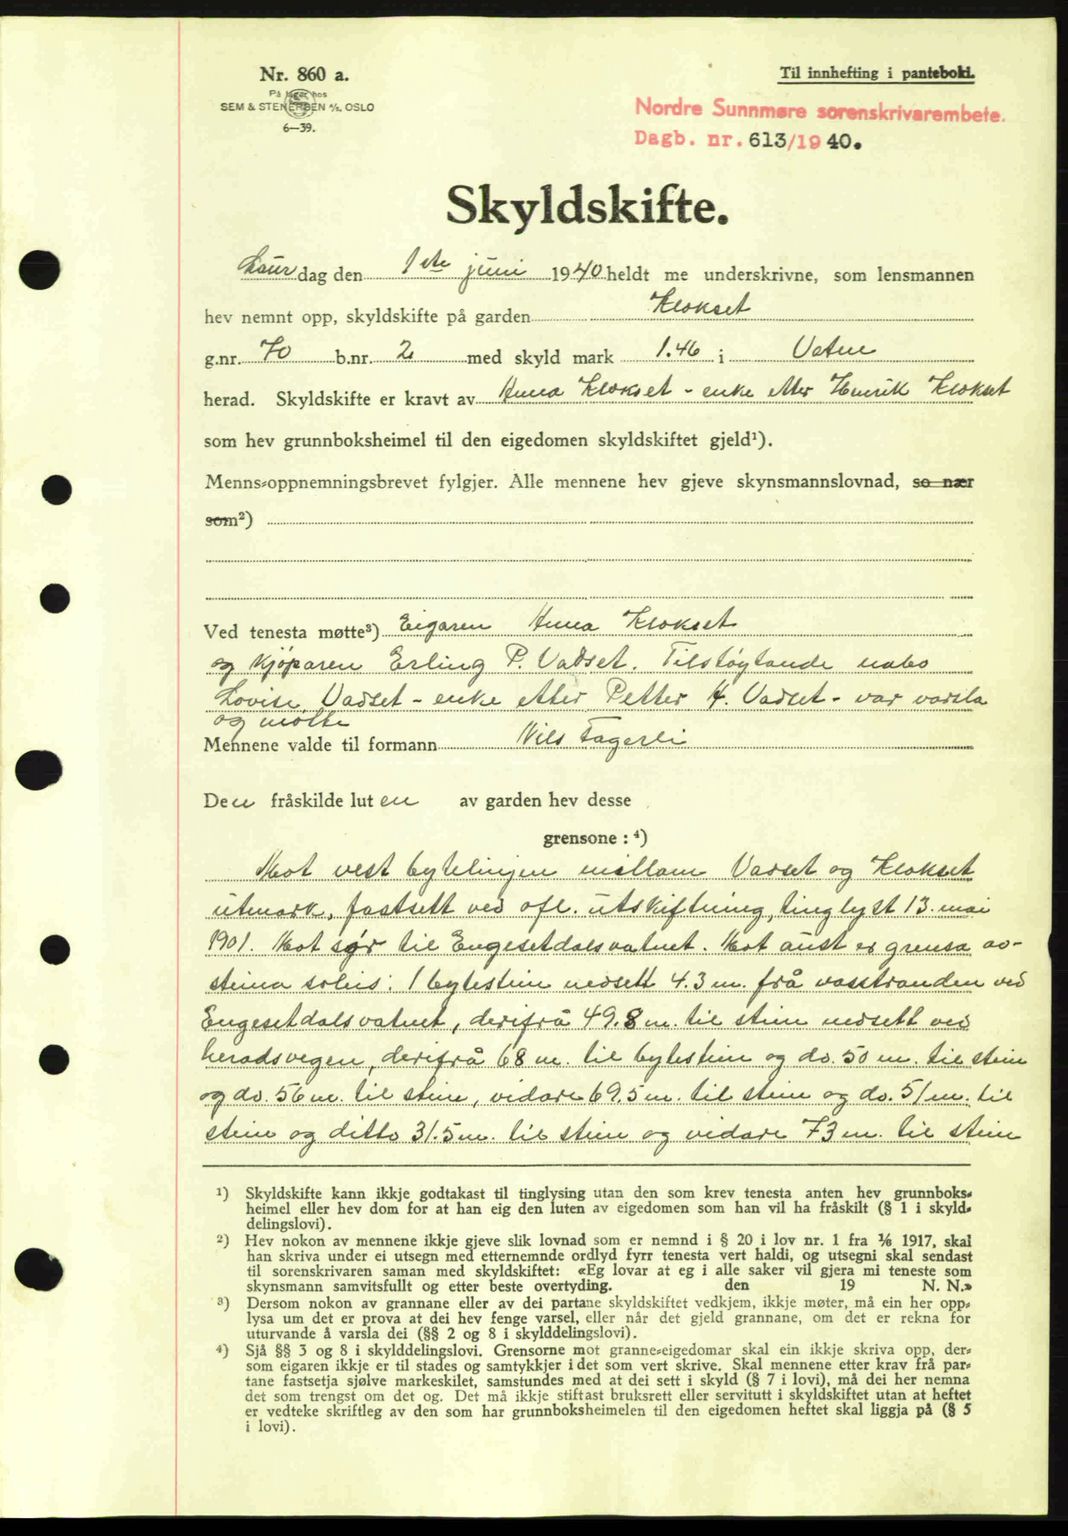 Nr. 860 a.
På lager hos
SEM & STENERSEN A/S, OSLO
6—39.
Til innhefting i pantebok.
Nordre Sunnmøre sorenskrivarembete.
Dagb. nr. 613/1940.
Skyldskifte.
Laur dag den 1ste juni 1940 heldt me underskrivne, som lensmannen
hev nemnt opp, skyldskifte på garden Klokset
g.nr. 70 b.nr. 2 med skyld mark 1.46 i Vatne
herad. Skyldskifte er kravt av Anna Klokset - enke etter Henrik Klokset
som hev grunnboksheimel til den eigedomen skyldskiftet gjeld¹).
Menns=oppnemningsbrevet fylgjer. Alle mennene hev gjeve skynsmannslovnad, so nær
som²)
Ved tenesta møtte³) Eigaren Anna Klokset
og kjöparen Erling P. Vadset. Tilstøytande nabo
Lovise Vadset - enke etter Petter H. Vadset - var varsla
og møtte
Mennene valde til formann Nils Fagerli
Den fråskilde luten av garden hev desse
grensone : ⁴)
Mot vest bytelinjen millom Vadset og Klokset
utmark, fastsett ved ofl. utskiftning, tinglyst 13. mai
1901. Mot sør til Engesetdalsvatnet. Mot aust er grensa av-
steina soleis: 1 bytestein nedsett 4.3 m. frå vasstranden ved
Engesetdalsvatnet, derifrå 49.8 m. til stein nedsett ved
heradsvegen, derifrå 68 m. til bytestein og do. 50 m. til stein
og do. 56 m. til stein, vidare 69.5 m. til stein og do. 51 m. til
stein og ditto 31.5 m. til stein og vidare 73 m. til stein
¹) Skyldskifte kann ikkje godtakast til tinglysing utan den som krev tenesta anten hev grunnboks=
heimel eller hev dom for at han eig den luten av eigedomen som han vil ha fråskilt (§ 1 i skyld=
delingslovi).
²) Hev nokon av mennene ikkje gjeve slik lovnad som er nemnd i § 20 i lov nr. 1 fra 1/6 1917, skal
han skriva under ei utsegn med etternemnde ordlyd fyrr tenesta vert haldi, og utsegni skal sendast
til sorenskrivaren saman med skyldskiftet: «Eg lovar at eg i alle saker vil gjera mi teneste som
skynsmann samvitsfullt og etter beste overtyding. den 19 N. N.»
³) Dersom nokon av grannane eller av dei partane skyldskiftet vedkjem, ikkje møter, må ein her opp=
lysa um det er prova at dei hev fenge varsel, eller når det gjeld grannane, om det er rekna for
uturvande å varsla dei (§§ 2 og 8 i skylddelingslovi).
⁴) Sjå §§ 3 og 8 i skylddelingslovi. Grensorne mot granne=eigedomar skal ein ikkje skriva opp, der=
som eigaren ikkje er til stades og samtykkjer i det som vert skrive. Skal mennene etter krav frå par=
tane fastsetja sjølve markeskilet, samstundes med at dei sett i skyld (§ 7 i lovi), må dei her nemna
det som trengst om det og. Det må ikkje stiftast bruksrett eller servitutt i skyldskiftet utan at heftet
er vedteke skriftleg av den som har grunnboksheimelen til den eigedomen heftet skal liggja på (§ 5
i lovi).